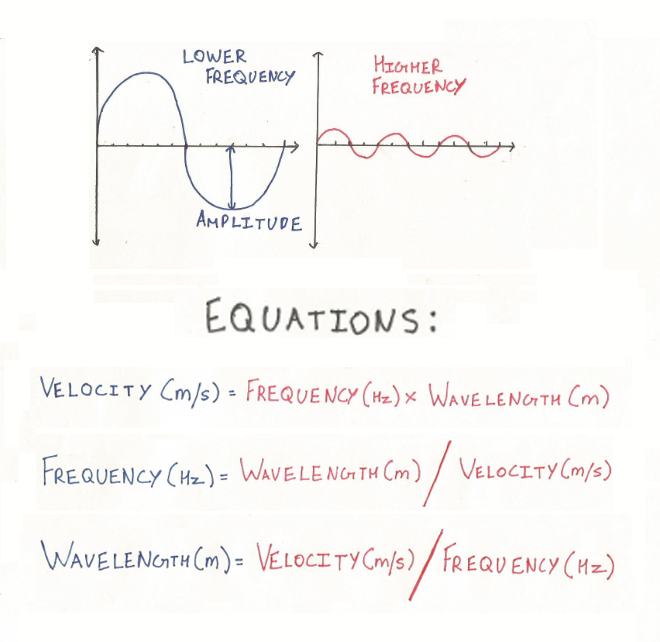 LOWER
FREQUENCY
HIGHER
FREQUENCY
AMPLITUDE
EQUATIONS:
VELOCITY (m/s) = FREQUENCY (Hz) x WAVELENGTH (m)
FREQUENCY (Hz) = WAVELENGTH (m) / VELOCITY (m/s)
WAVELENGTH (m) = VELOCITY (m/s) / FREQUENCY (Hz)